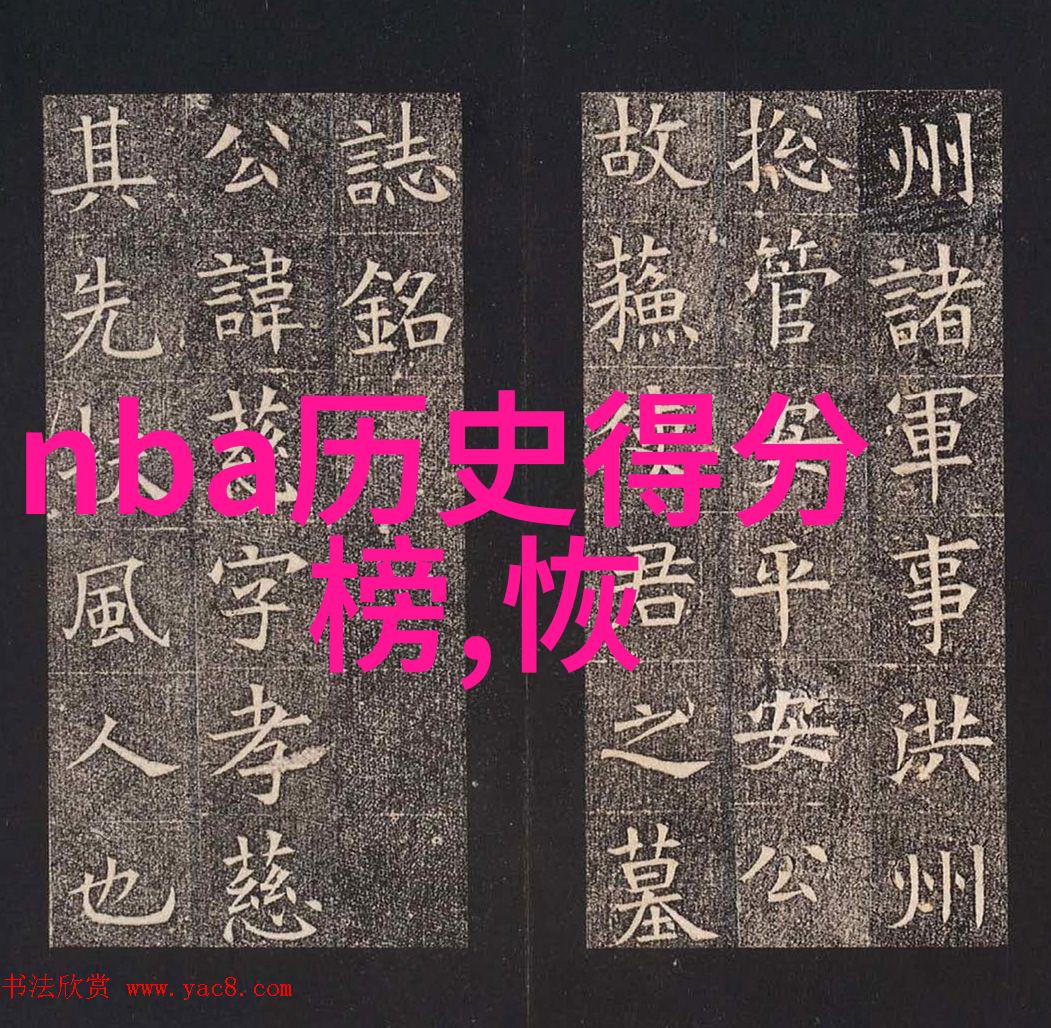 州諸軍事洪州
揔管安平安公
故蘓使君之墓
誌銘
公諱慈字孝慈
其先扶風人也
nba历史得分
榜,恢
书法欣赏 www.yac8.com